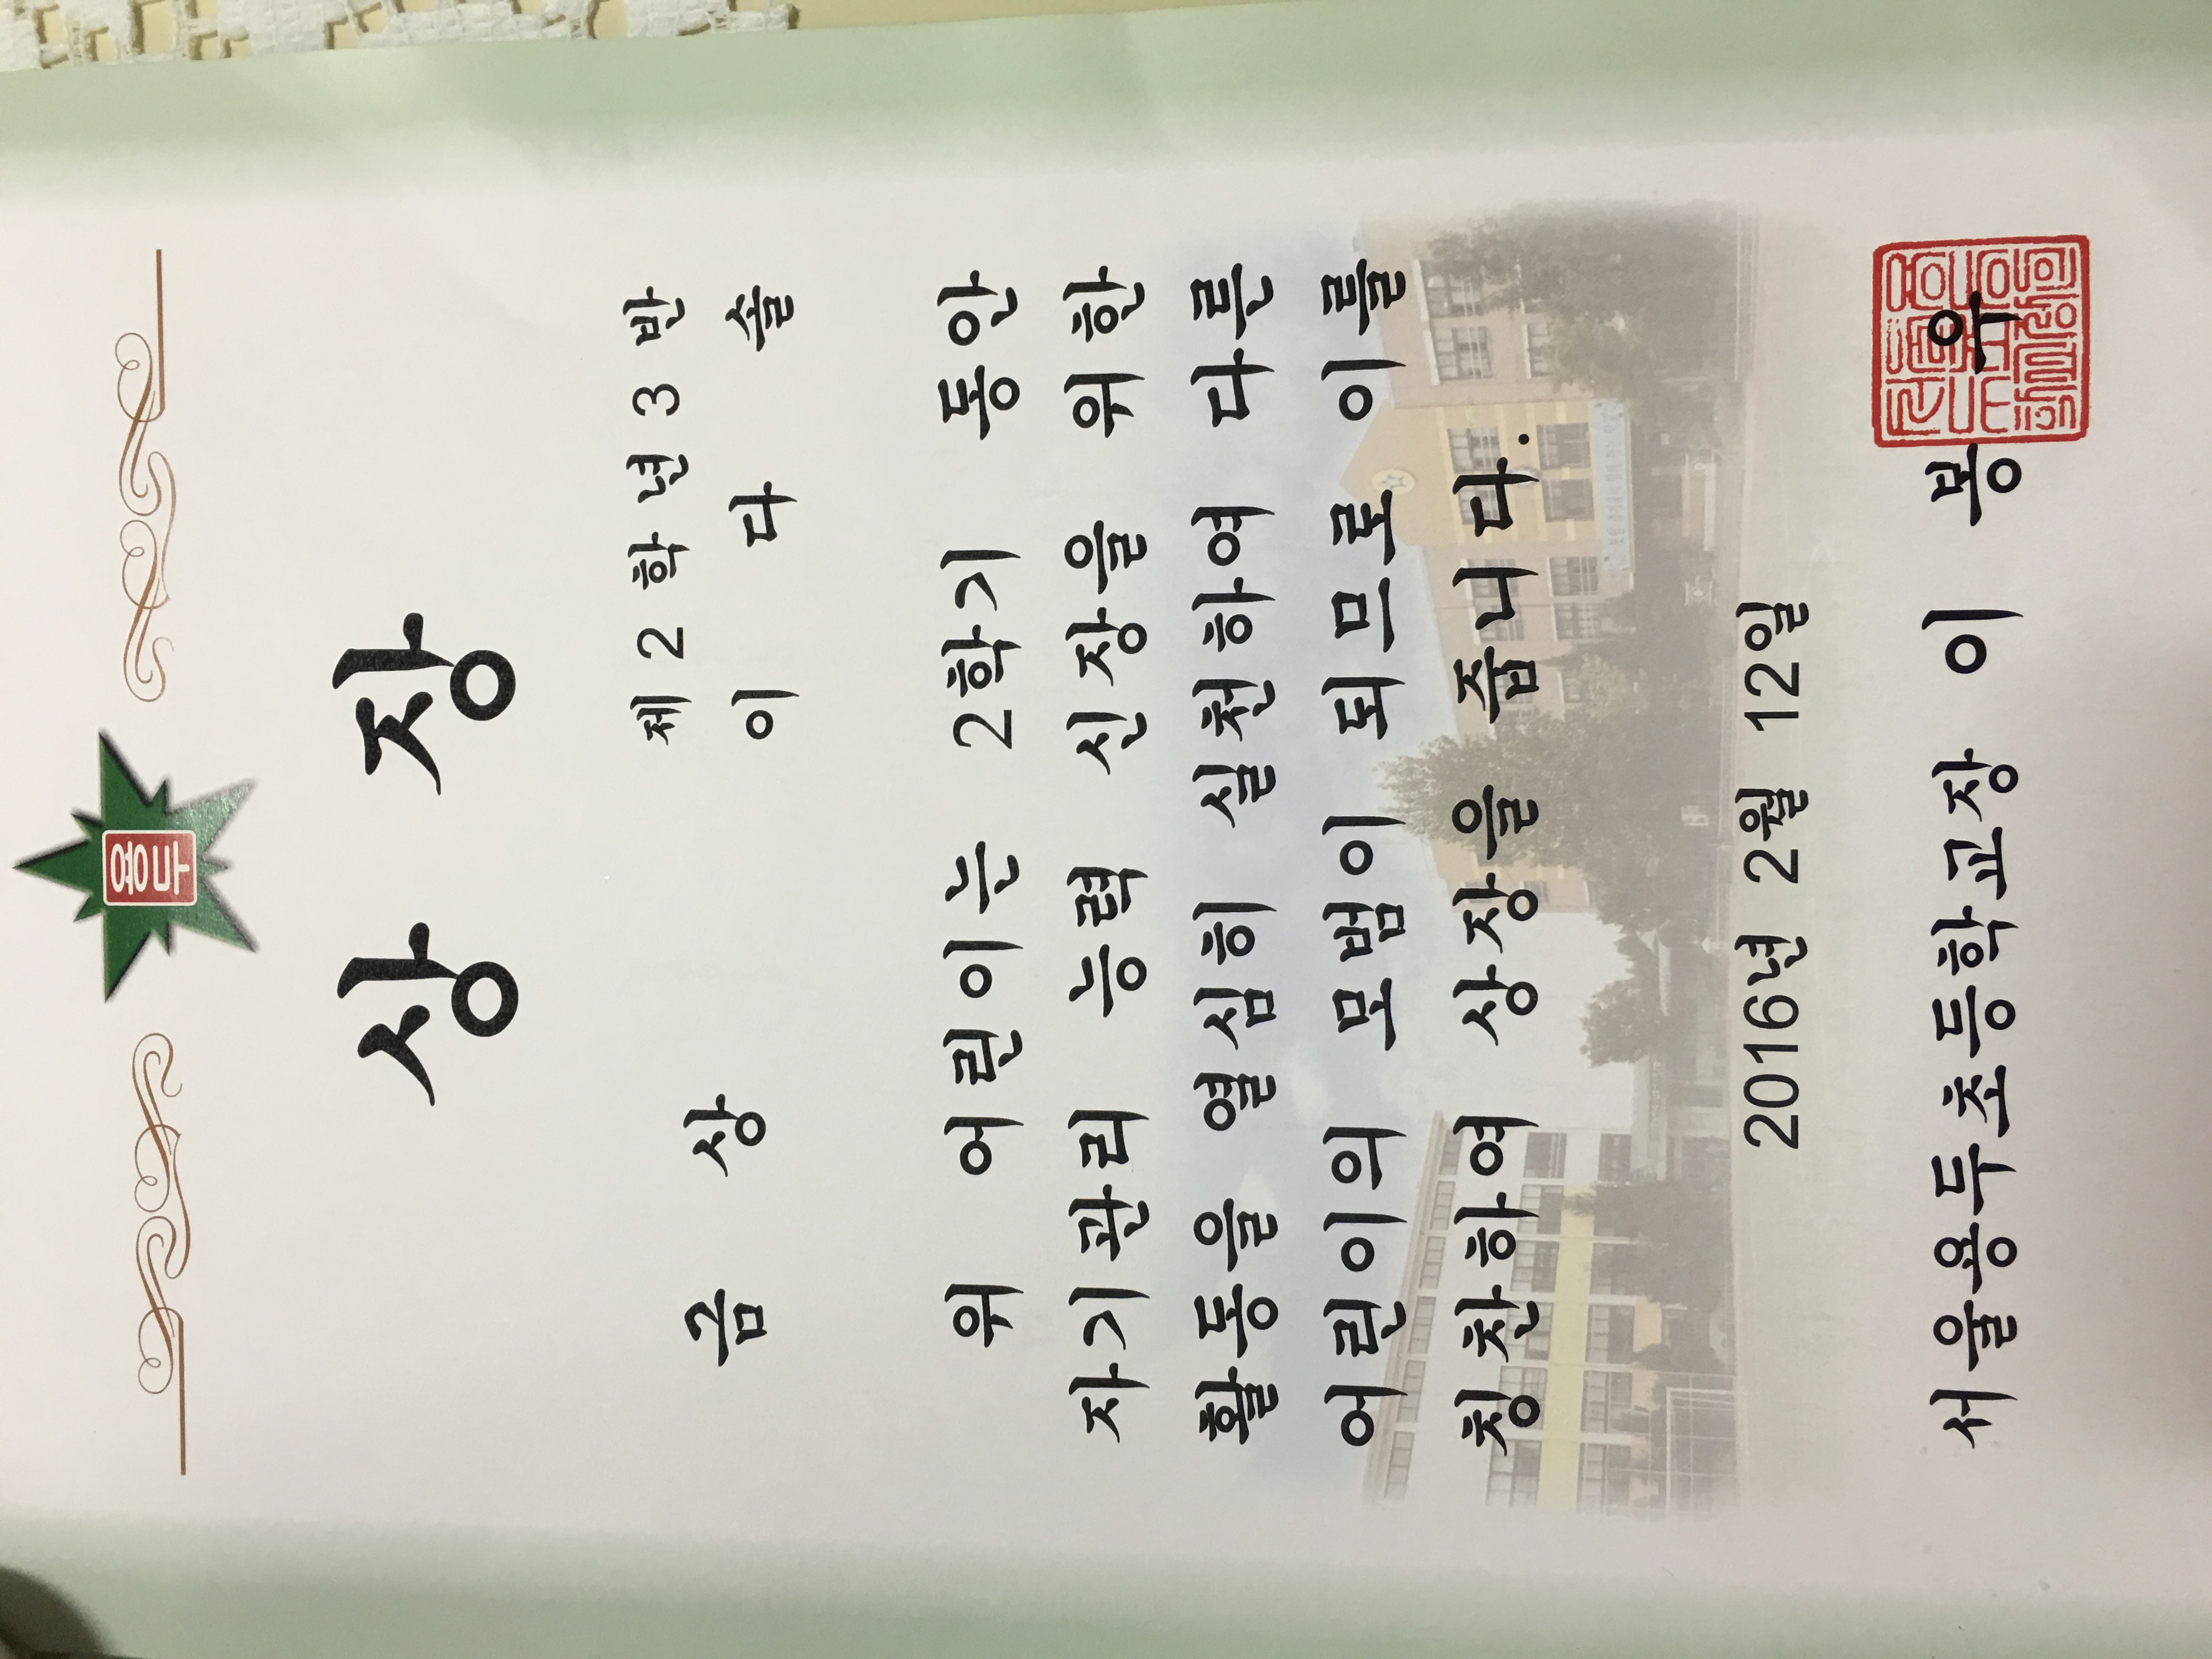 용두
상 장
금 상
제 2 학 년 3 반
이 다 솔
위 어린이는 2학기 동안
자기관리 능력 신장을 위한
활동을 열심히 실천하여 다른
어린이의 모범이 되므로 이를
칭찬하여 상장을 줍니다.
2016년 2월 12일
서울용두초등학교장 이 봉 우